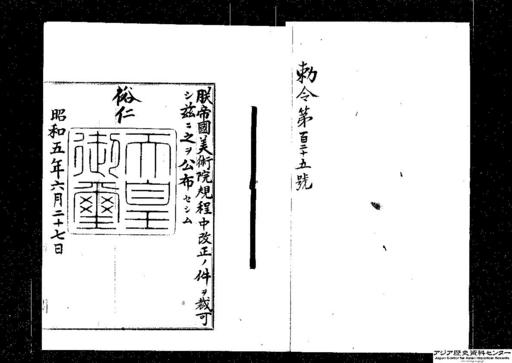 勅令第百二十五號
朕帝國美術院規程中改正ノ件ヲ裁可
シ茲ニ之ヲ公布セシム
裕仁
天皇
御璽
昭和五年六月二十七日
アジア歴史資料センター
Japan Center for Asian Historical Records